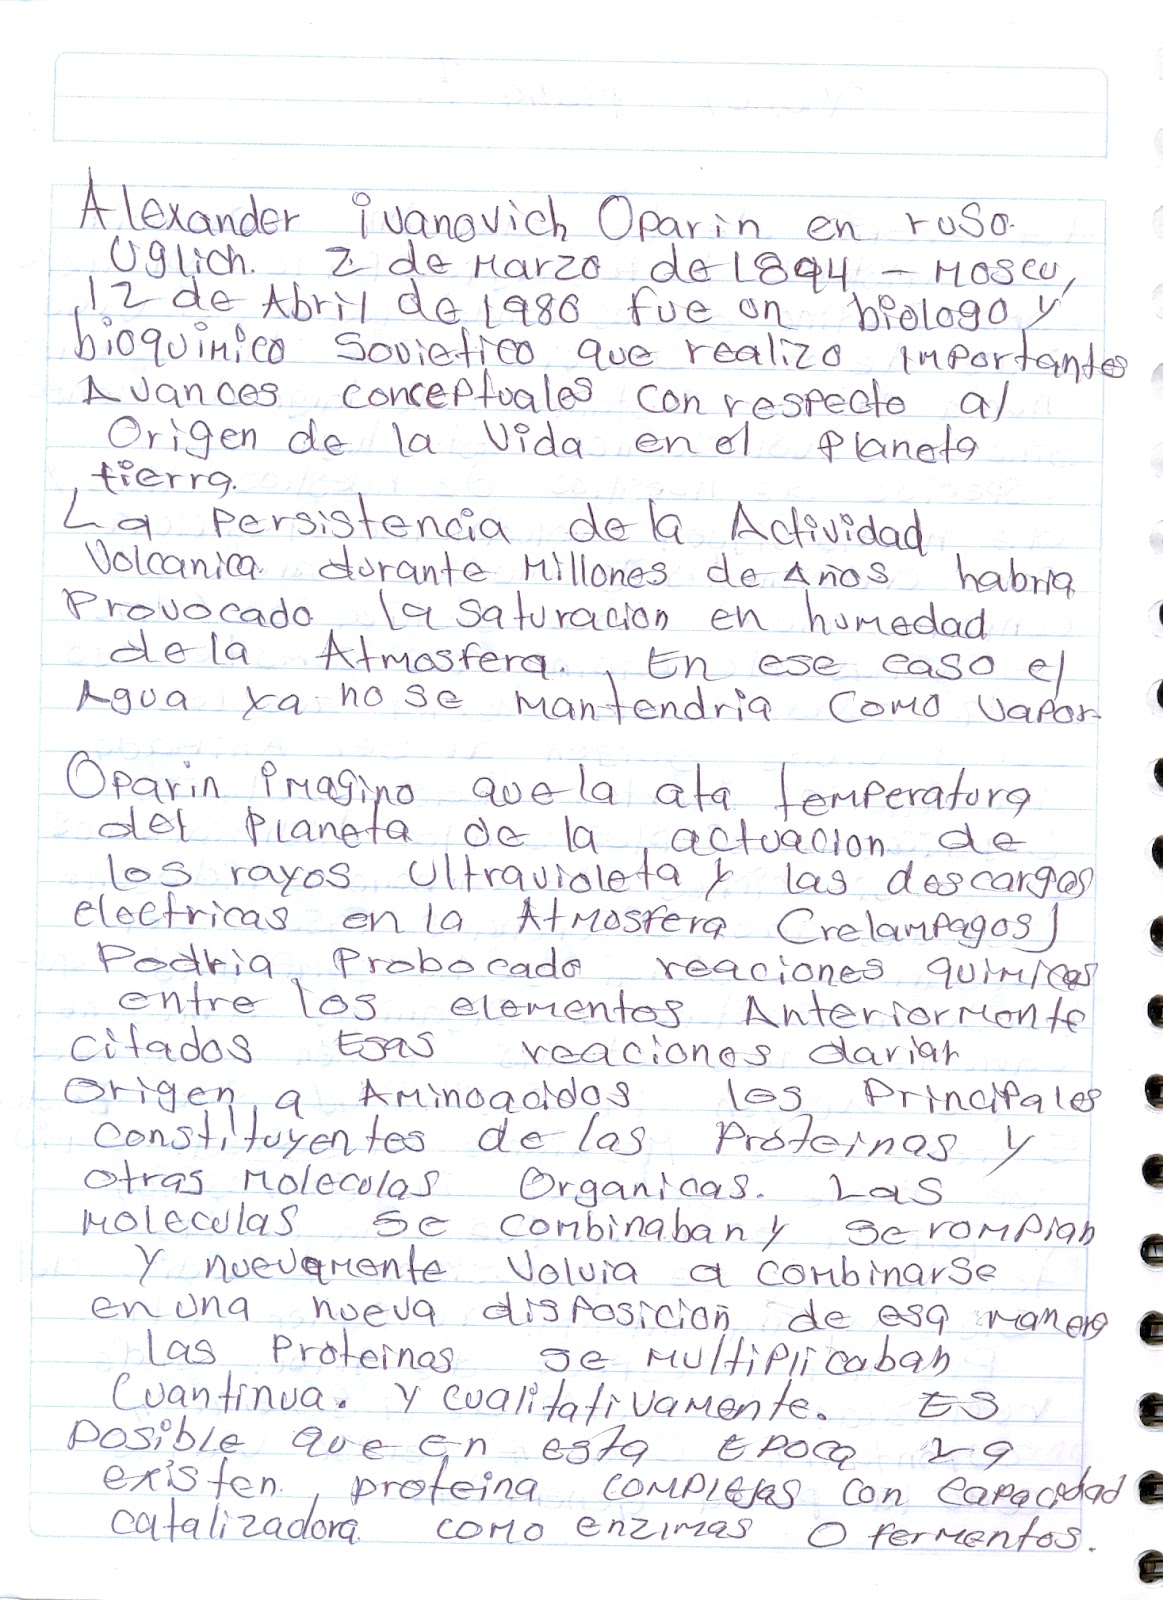 Alexander ivanovich Oparin en ruso.
Uglich. 2 de Marzo de 1894 - Moscu,
12 de Abril de 1980 fue un biologo y
bioquimico Sovietico que realizo importantes
Avances conceptuales con respecto al
Origen de la Vida en el Planeta
tierra.
La Persistencia de la Actividad
Volcanica durante Millones de Años habria
Provocado la saturacion en humedad
de la Atmosfera. En ese caso el
Agua ya no se mantendria como vapor
Oparin imagino que la ata temperatura
del Planeta de la actuacion de
los rayos Ultravioleta y las descargas
electricas en la Atmosfera (relampagos)
Podria Probocado reaciones quimicas
entre los elementos Anteriormente
citados Esas reaciones darian
Origen a Aminoacidos los Principales
constituyentes de las Proteinas y
otras Moleculas Organicas. Las
Moleculas se combinaban y se rompian
Y nuevamente Volvia a combinarse
en una nueva disposicion de esa manera
las Proteinas se Multiplicaban
Cuantinua. Y cualitativamente. ES
Posible que en esta Epoca ya
existen proteina complejas con capacidad
catalizadora como enzimas O fermentos.